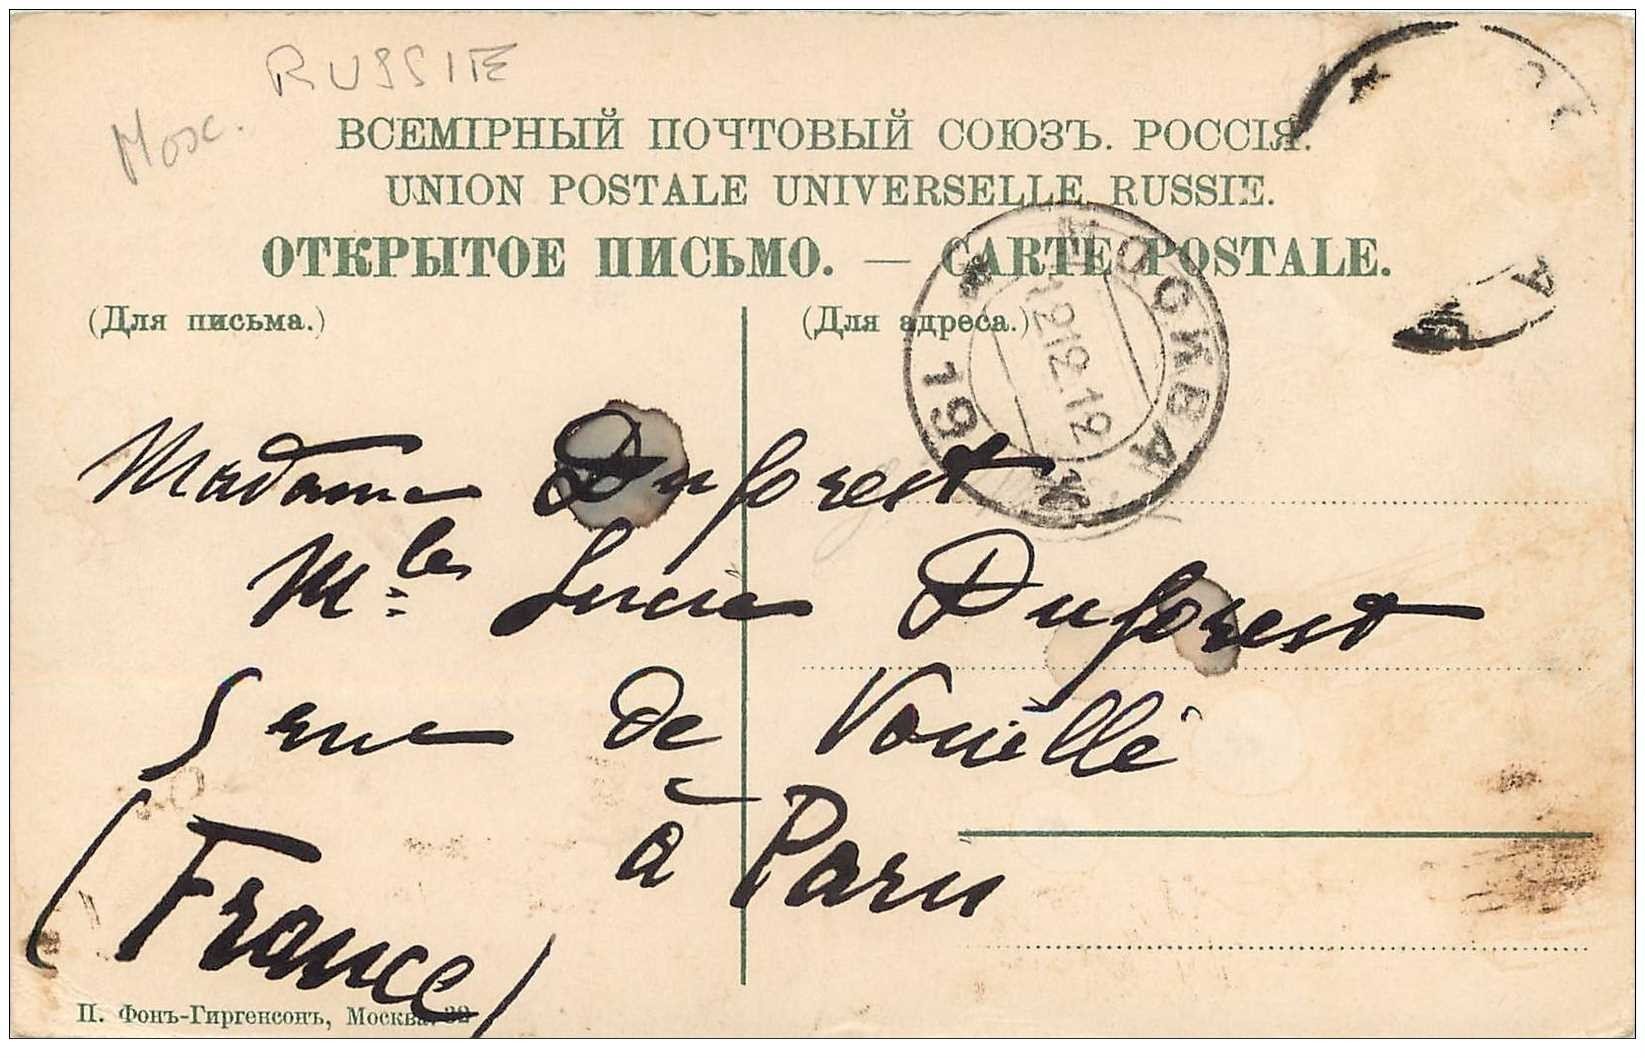 RUSSIE
Mosc.
ВСЕМІРНЫЙ ПОЧТОВЫЙ СОЮЗЪ. РОССІЯ.
UNION POSTALE UNIVERSELLE. RUSSIE.
ОТКРЫТОЕ ПИСЬМО. — CARTE POSTALE.
(Для письма.) (Для адреса.)
МОСКВА
12 12.12
19
Madame Duforest
Mles Lucie Duforest
5 rue de Vouillé
à Paris
(France)
П. Фонъ-Гиргенсонъ, Москва. 32